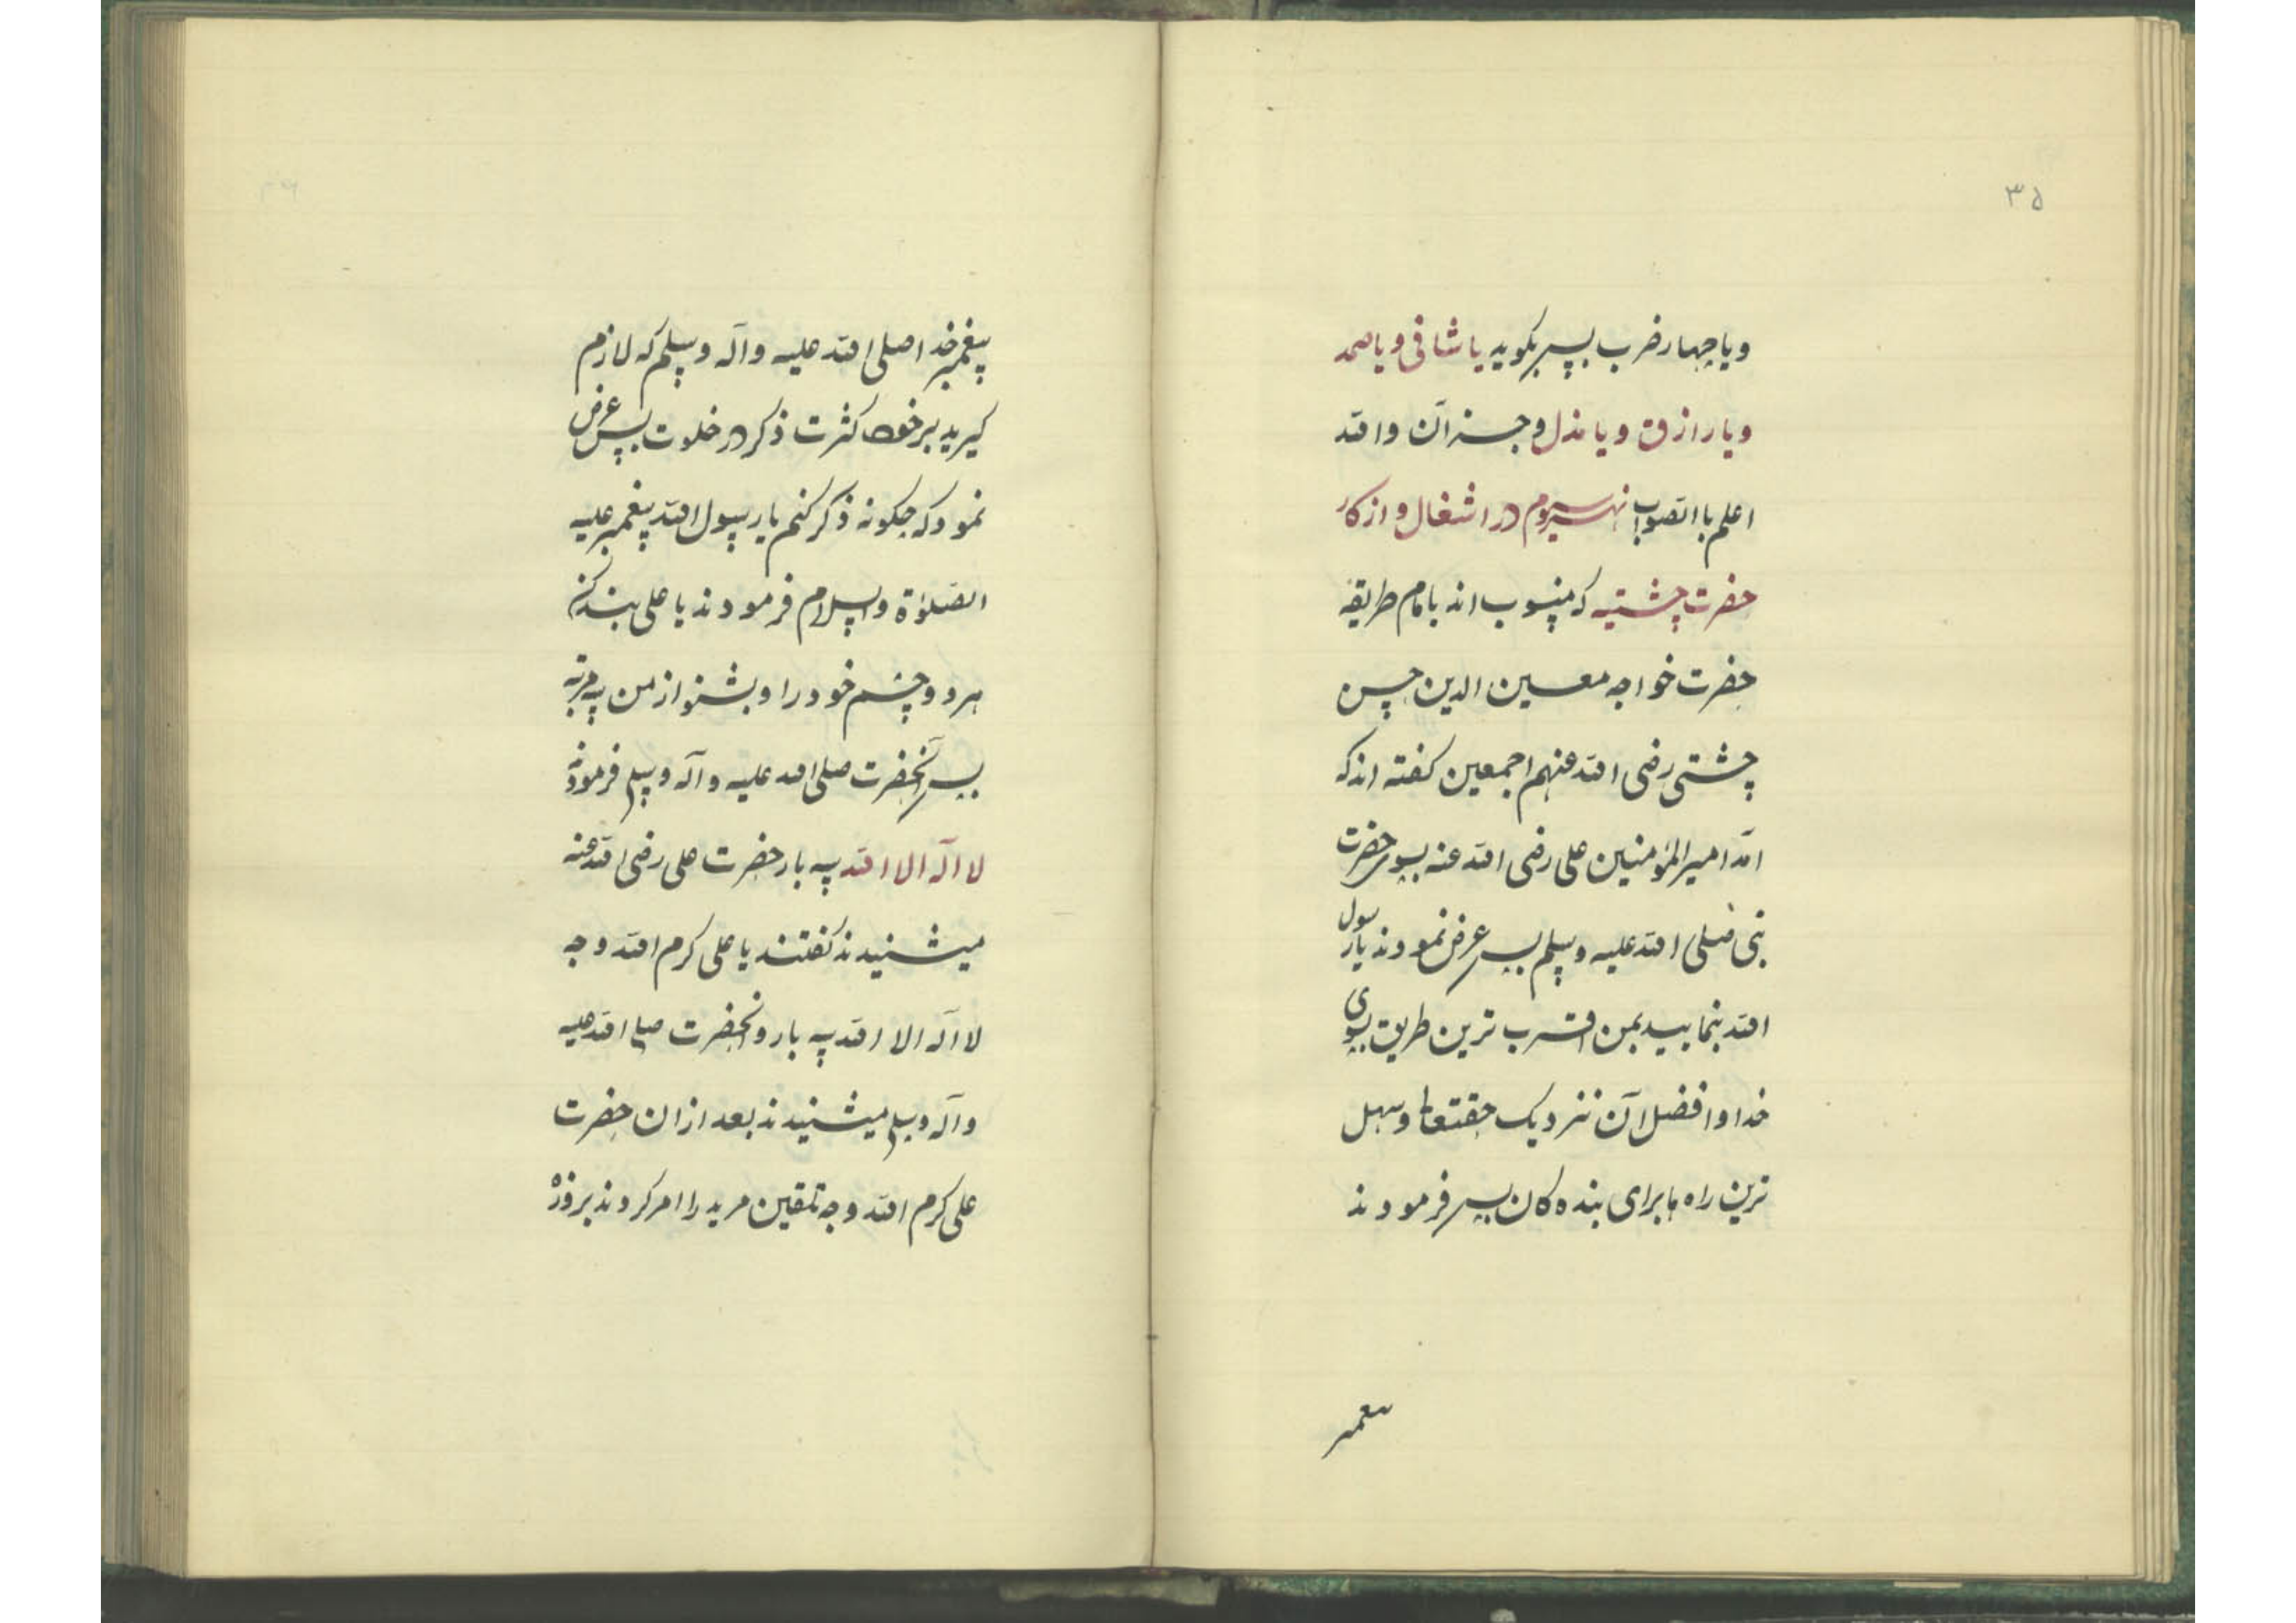 ۳۵
ویا چهار ضرب پس بکوید یا شافی ویا صمد
ویا رازق ویا مذل و جز آن والله
اعلم باالصواب نهر سیوم در اشغال و ازکار
حضرت چشتیه که منسوب اند بامام طریقه
حضرت خواجه معین الدین حسن
چشتی رضی الله عنهم اجمعین کفته اند که
امد امیر المؤمنین علی رضی الله عنه بسوی حضرت
نبی صلی الله علیه وسلم پس عرض نمودند یا رسول
الله بنمایید بمن اقرب ترین طریق بسوی
خدا و افضل آن نزدیک حقتعالی و سهل
ترین راه ها برای بنده کان پس فرمودند
پیغمبر
۳۶
پیغمبر خدا صلی الله علیه وآله وسلم که لازم
کیرید بر خود کثرت ذکر در خلوت پس عرض
نمود که چکونه ذکر کنم یا رسول الله پیغمبر علیه
الصلوٰة والسلام فرمودند یا علی بند کن
هر دو چشم خود را و بشنو از من سه مرتبه
پس آنحضرت صلی الله علیه وآله وسلم فرمودند
لا اله الا الله سه بار حضرت علی رضی الله عنه
میشنیدند کفتند یا علی کرم الله وجه
لا اله الا الله سه بار و آنحضرت صلی الله علیه
وآله وسلم میشنیدند بعد ازان حضرت
علی کرم الله وجه تلقین مرید را امر کردند بروزه